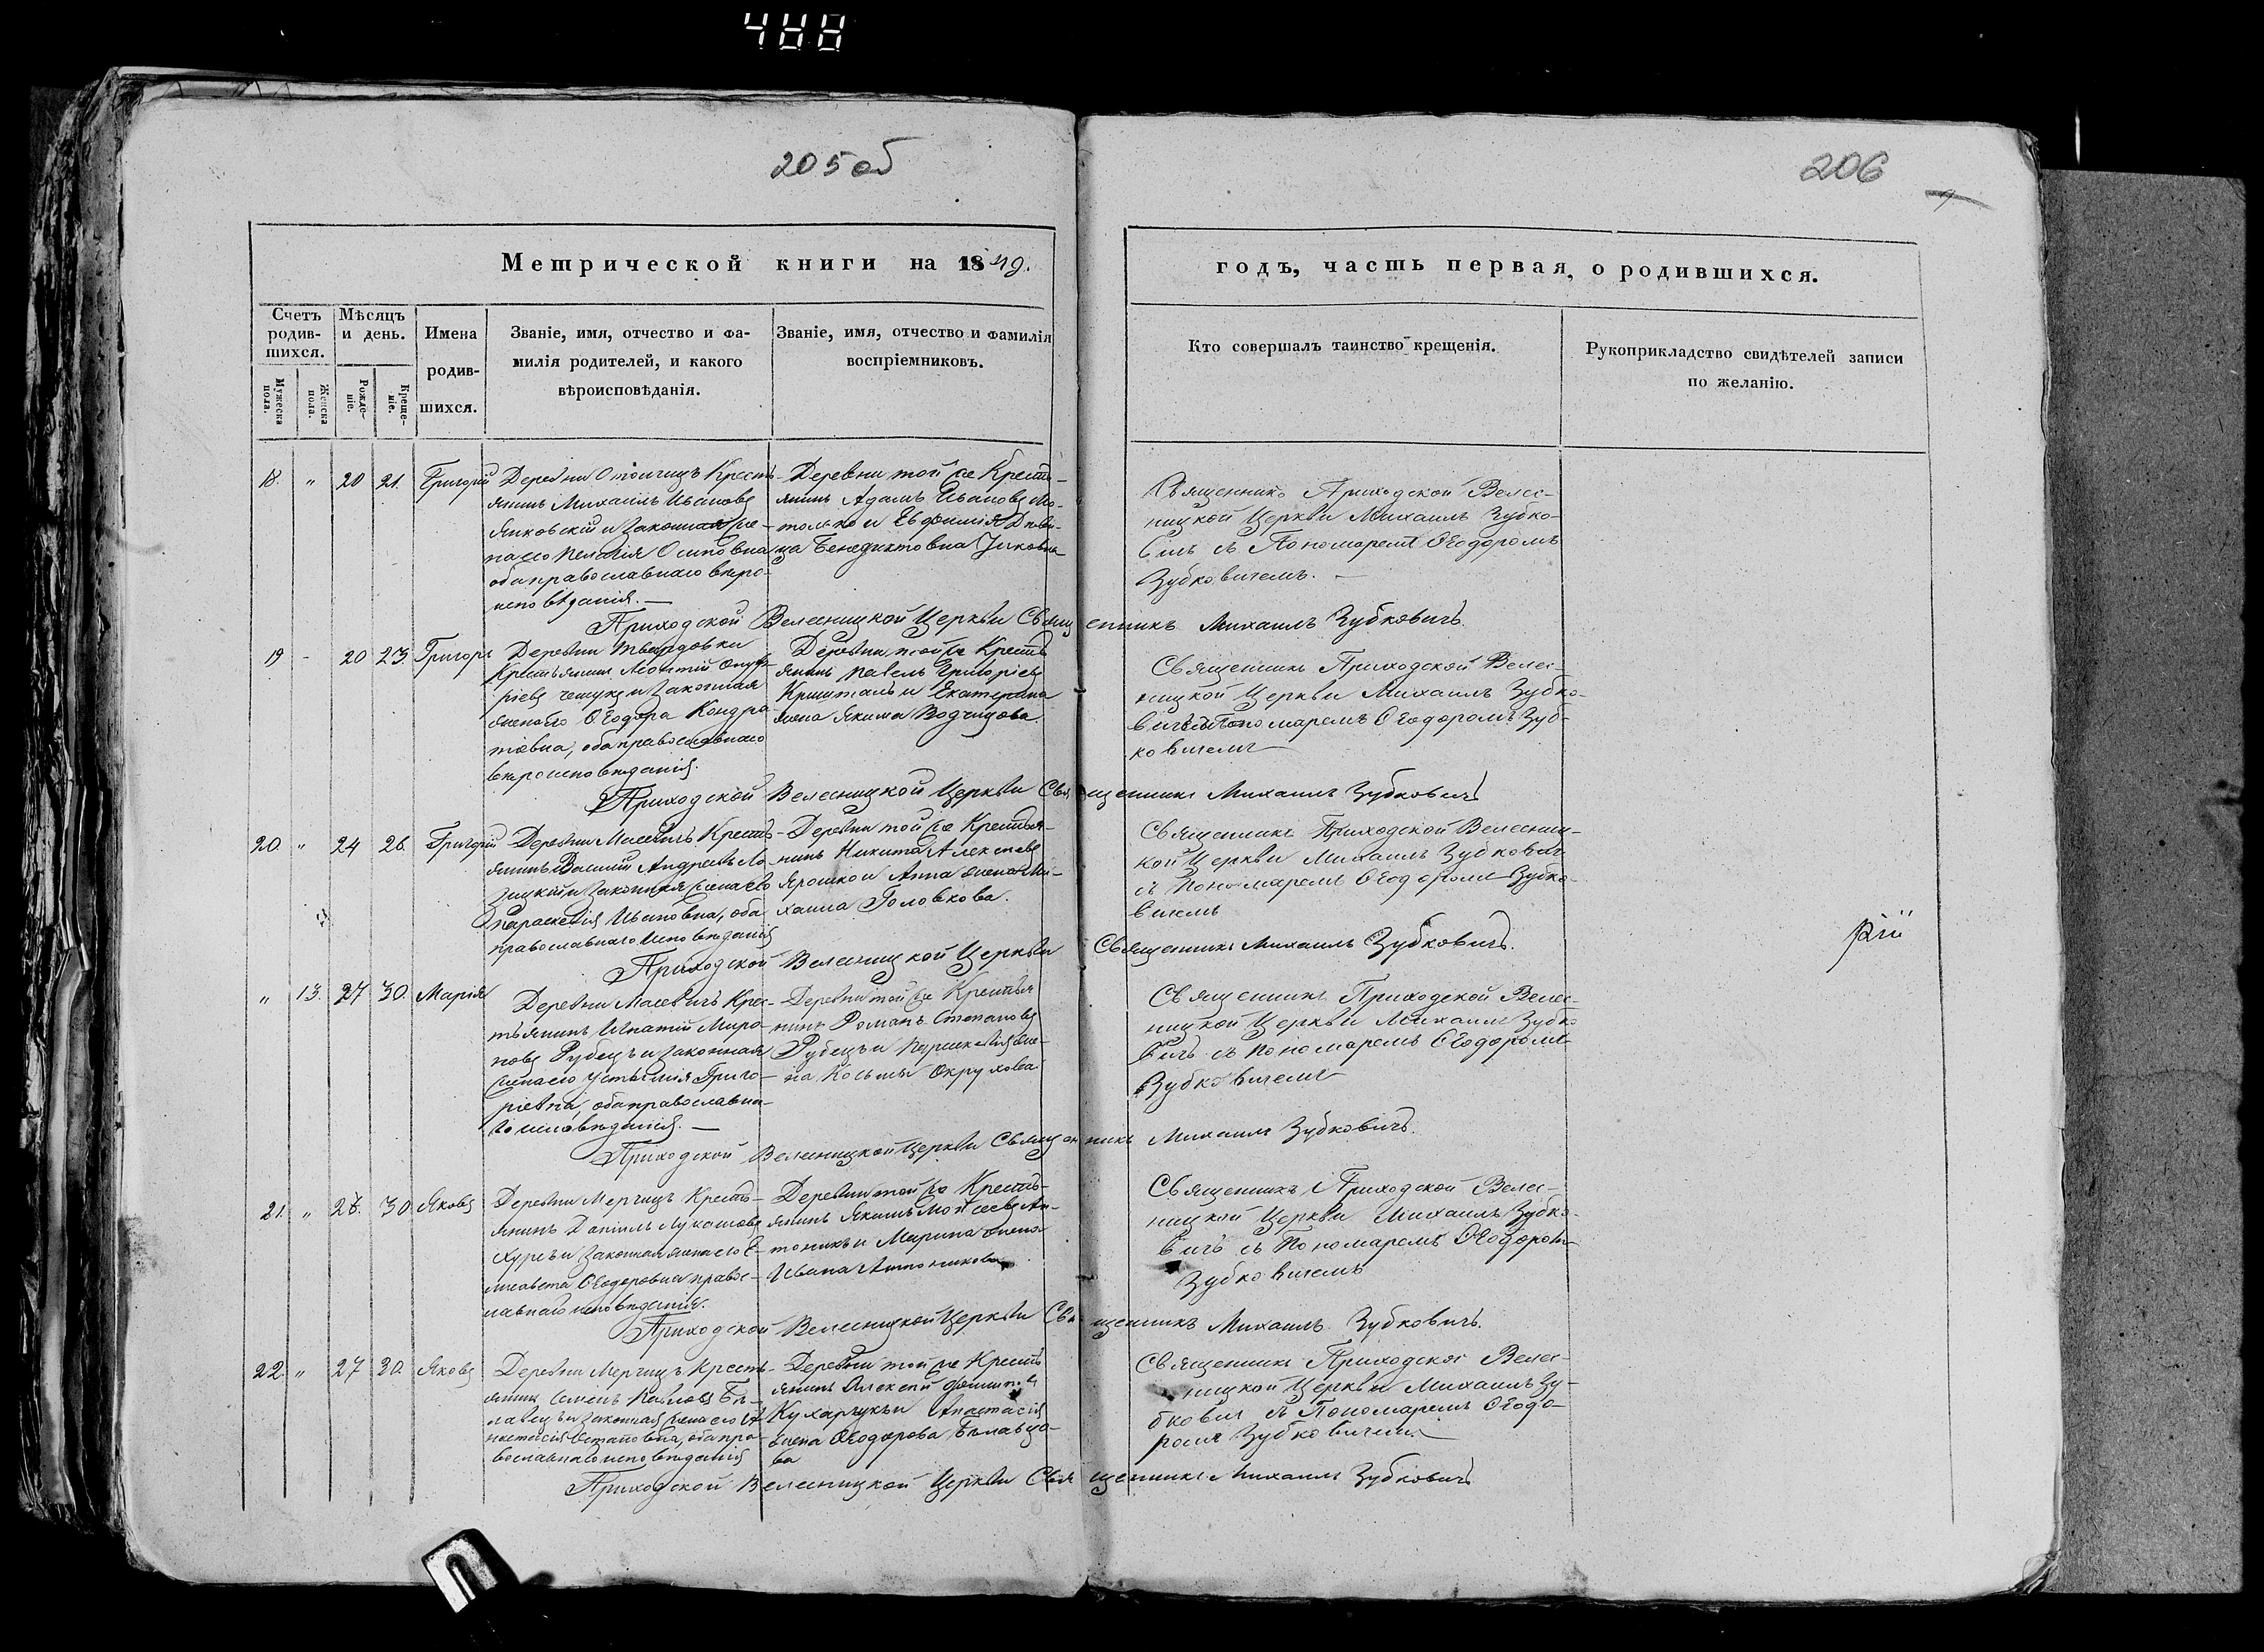 488
205 об
206
Метрической книги на 1849.
годъ, часть первая, о родившихся.
Счетъ родив-шихся.
Мужеска пола.
Женска пола.
Мѣсяцъ и день.
Рожде-ніе.
Креще-ніе.
Имена
родив-
шихся.
Званіе, имя, отчество и фа-
милія родителей, и какого
вѣроисповѣданія.
Званіе, имя, отчество и фамилія
воспріемниковъ.
Кто совершалъ таинство крещенія.
Рукоприкладство свидѣтелей записи
по желанію.
18. „ 20 21. Григорій
Деревни Отолчицъ Кресть-
янинъ Михаилъ Ивановъ
и законная же-
на его Пелагія Осиповна
оба православнаго вѣро-
исповѣданія.—
Деревни той же Кресть-
янинъ Адамъ Ивановъ
и Евфимія
Бенедиктовна
Священникъ Приходской Велес-
ницкой Церкви Михаилъ Зубко-
вичь съ Пономаремъ Ѳеодоромъ
Зубковичемъ.—
Приходской Велесницкой Церкви Священникъ Михаилъ Зубковичъ.
19 - 20 23. Григоръ
Деревни Твардовки
Крестьянинъ Леонтій Онуф-
ріевъ и законная
жена его Ѳеодора Кондра-
тіевна, оба православнаго
вѣроисповѣданія.
Деревни той же Кресть
янинъ Павелъ Григоріевъ
Кришталь и Екатерина
жена Якима
Священникъ Приходской Велес-
ницкой Церкви Михаилъ Зубко-
вичь съ Пономаремъ Ѳеодоромъ Зуб-
ковичемъ
Приходской Велесницкой Церкви Священникъ Михаилъ Зубковичъ
20. „ 24 26. Григорій
Деревни Масевичъ Кресть-
янинъ Василій Андреевъ Ло-
зицкій и законная жена его
Параскевія Ивановна, оба
православнаго исповѣданія
Деревни той же Крестья-
нинъ Никита Алексѣевъ
Ярошко и Анна жена Ми-
хаила Головкова.
Священникъ Приходской Велесниц-
кой Церкви Михаилъ Зубкович
съ Пономаремъ Ѳеодоромъ Зубко-
вичемъ
Приходской Велесницкой Церкви Священникъ Михаилъ Зубковичъ.
„ 13. 27 30. Марія
Деревни Масевичъ Крес-
тьянинъ Игнатій Миро-
новъ Рубецъ и законная
жена его Устинія Григо-
ріевна, оба православна-
го исповѣданія.—
Деревни той же Крестья
нинъ Романъ Степановъ
Рубецъ и Параскевія же-
на Косьмы Окрухова
Священникъ Приходской Велес-
ницкой Церкви Михаилъ Зубко
вичъ съ Пономаремъ Ѳеодоромъ
Зубковичемъ
Приходской Велесницкой Церкви Священникъ Михаилъ Зубковичъ.
21. „ 28. 30. Яковъ
Деревни Мерчицъ Кресть-
янинъ Даніилъ Лукашовъ
и законная жена его Е-
лисавета Ѳеодоровна правос-
лавнаго исповѣданія.
Деревни той же Кресть-
янинъ Якимъ Моисеевъ Ан-
тоникъ и Марина жена
Ивана Антоникова
Священникъ Приходской Велес-
ницкой Церкви Михаилъ Зубко-
вичъ съ Пономаремъ Ѳеодором
Зубковичемъ
Приходской Велесницкой Церкви Священникъ Михаилъ Зубковичъ.
22. „ 27 30. Яковъ
Деревни Мерчицъ Кресть-
янинъ Семенъ Павловъ Бѣ-
лавецъ и законная жена его Ан
настасія оба пра-
вославнаго исповѣданія
Деревни той же Кресть
янинъ Алексѣй
Кухарчукъ и Анастасія
жена Ѳеодорова Бѣлавцо-
ва
Священникъ Приходской Велес-
ницкой Церкви Михаилъ Зу-
бкович съ Пономаремъ Ѳеодо-
ромъ Зубковичемъ
Приходской Велесницкой Церкви Священникъ Михаилъ Зубковичъ